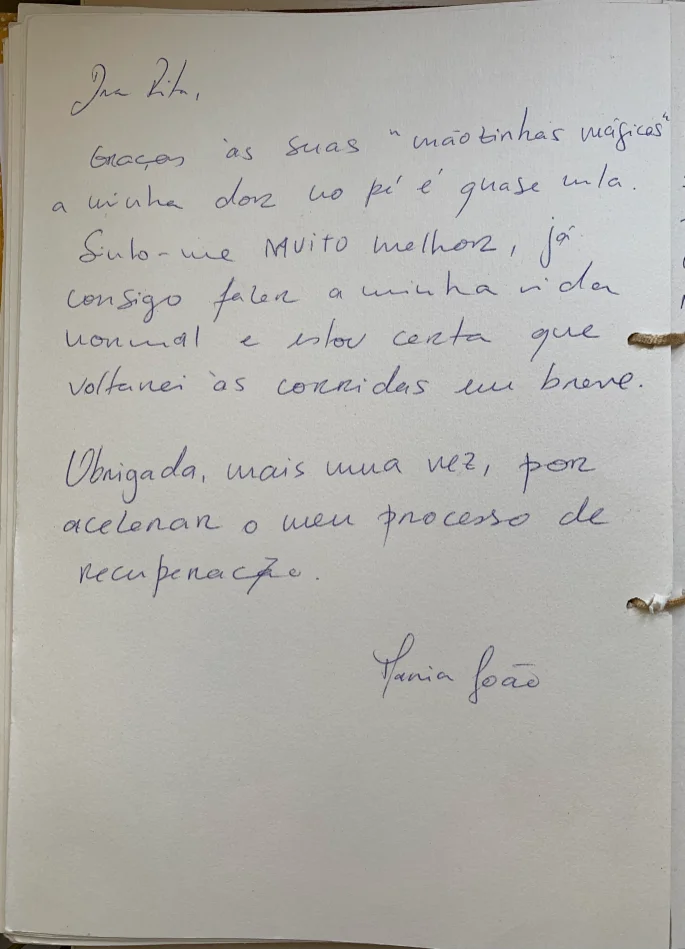 Dra Rita,
Graças às suas "mãozinhas mágicas"
a minha dor no pé é quase nula.
Sinto-me MUITO melhor, já
consigo fazer a minha vida
normal e estou certa que
voltarei às corridas em breve.
Obrigada, mais uma vez, por
acelerar o meu processo de
recuperação.
Maria João